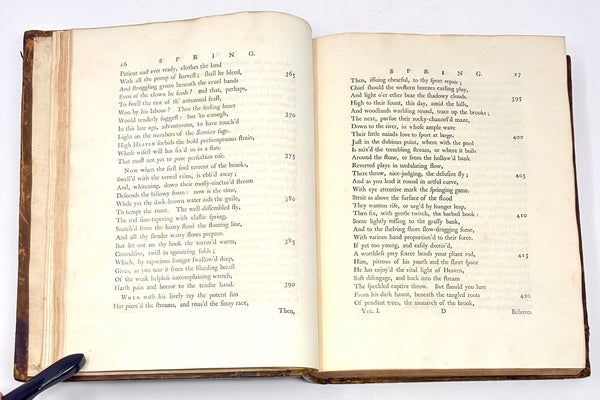 16 SPRING.
Patient and ever ready, clothes the land
With all the pomp of harveſt; ſhall he bleed, 365
And ſtruggling groan beneath the cruel hands
Even of the clown he feeds? and that, perhaps,
To ſwell the riot of th' autumnal feaſt,
Won by his labour? Thus the feeling heart
Would tenderly ſuggeſt: but 'tis enough, 370
In this late age, adventurous, to have touch'd
Light on the numbers of the Samian ſage.
High HEAVEN forbids the bold preſumptuous ſtrain,
Whoſe wiſeſt will has fix'd us in a ſtate
That muſt not yet to pure perfection riſe. 375
Now when the firſt foul torrent of the brooks,
Swell'd with the vernal rains, is ebb'd away;
And, whitening, down their moſſy-tinctur'd ſtream
Deſcends the billowy foam: now is the time,
While yet the dark-brown water aids the guile, 380
To tempt the trout. The well-diſſembled fly,
The rod fine-tapering with elaſtic ſpring,
Snatch'd from the hoary ſteed the floating line,
And all thy ſlender watry ſtores prepare.
But let not on thy hook the tortur'd worm, 385
Convulſive, twiſt in agonizing folds;
Which, by rapacious hunger ſwallow'd deep,
Gives, as you tear it from the bleeding breaſt
Of the weak helpleſs uncomplaining wretch,
Harſh pain and horror to the tender hand. 390
WHEN with his lively ray the potent ſun
Has pierc'd the ſtreams, and rous'd the finny race,
Then,
SPRING. 17
Then, iſſuing chearful, to thy ſport repair;
Chief ſhould the weſtern breezes curling play,
And light o'er ether bear the ſhadowy clouds. 395
High to their fount, this day, amid the hills,
And woodlands warbling round, trace up the brooks;
The next, purſue their rocky-channel'd maze,
Down to the river, in whoſe ample wave
Their little naiads love to ſport at large. 400
Juſt in the dubious point, where with the pool
Is mix'd the trembling ſtream, or where it boils
Around the ſtone, or from the hollow'd bank
Reverted plays in undulating flow,
There throw, nice-judging, the deluſive fly; 405
And as you lead it round in artful curve,
With eye attentive mark the ſpringing game.
Strait as above the ſurface of the flood
They wanton riſe, or urg'd by hunger leap,
Then fix, with gentle twitch, the barbed hook: 410
Some lightly toſſing to the graſſy bank,
And to the ſhelving ſhore ſlow-dragging ſome,
With various hand proportion'd to their force.
If yet too young, and eaſily deceiv'd,
A worthleſs prey ſcarce bends your pliant rod, 415
Him, piteous of his youth and the ſhort ſpace
He has enjoy'd the vital light of Heaven,
Soft diſengage, and back into the ſtream
The ſpeckled captive throw. But ſhould you lure
From his dark haunt, beneath the tangled roots 420
Of pendant trees, the monarch of the brook,
VOL. I. D Behoves